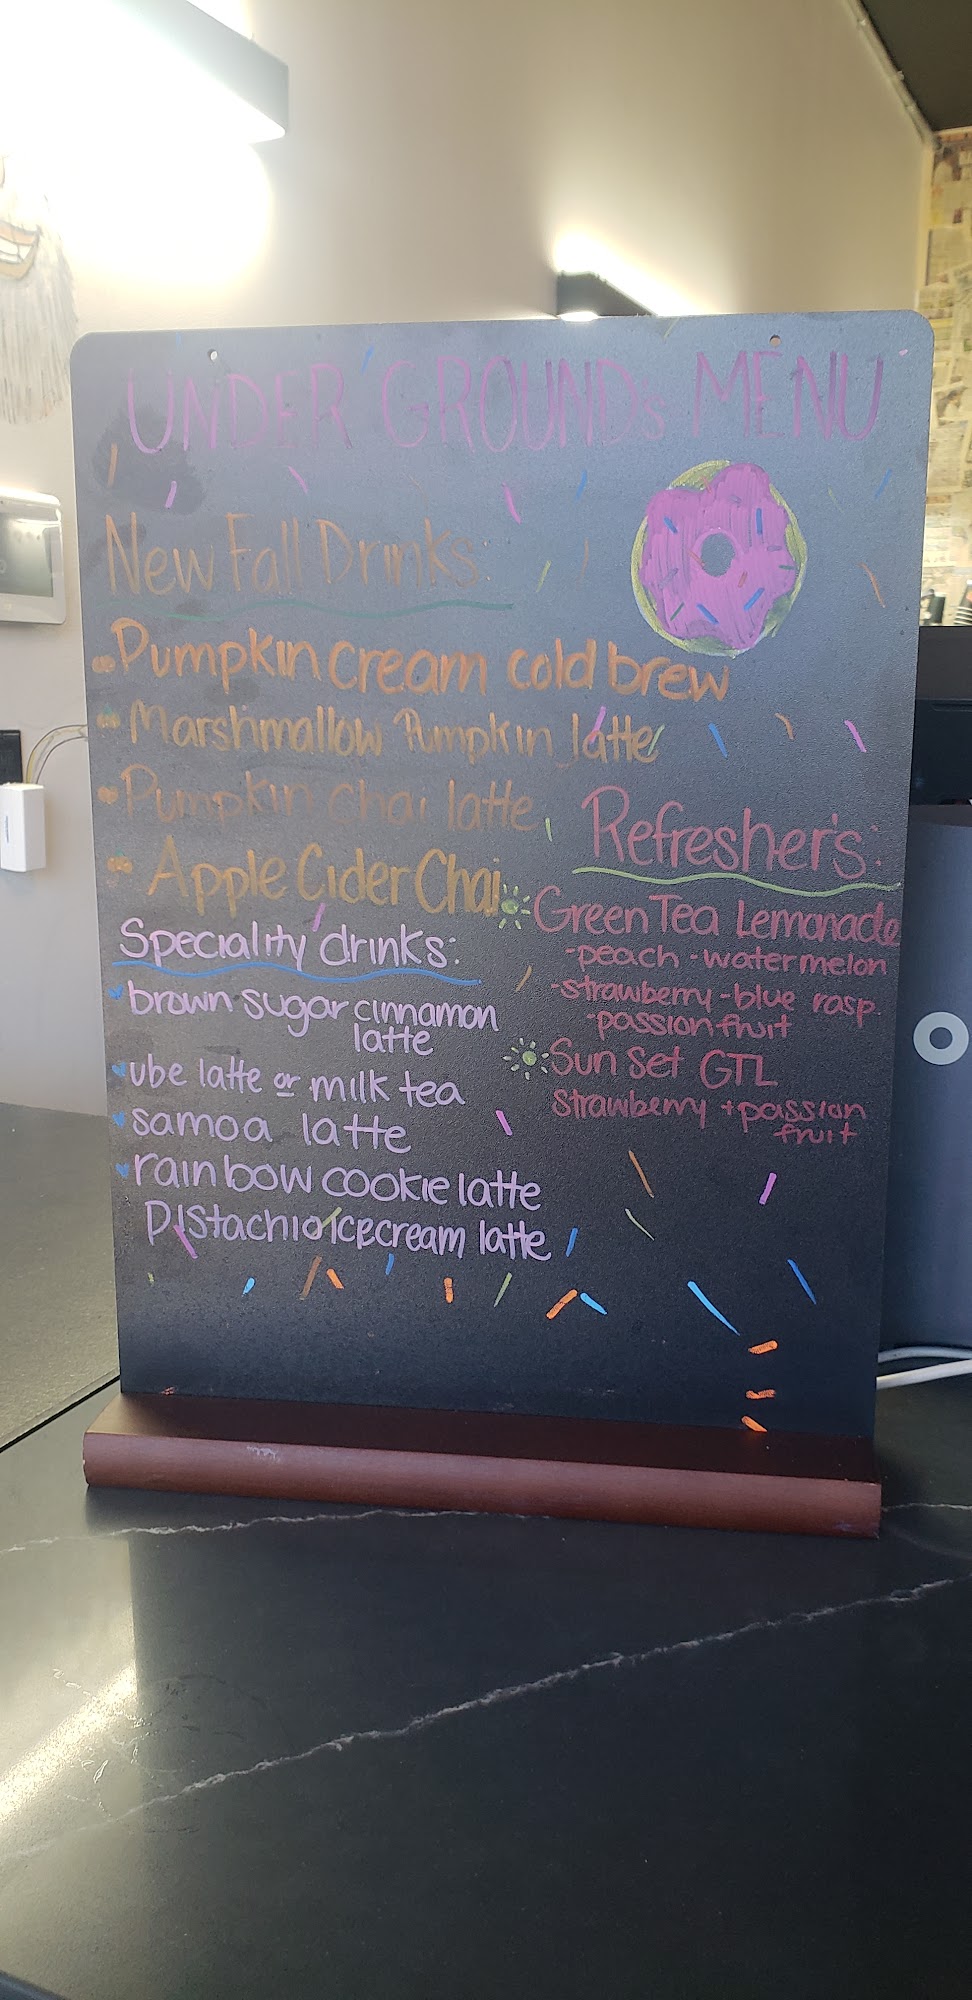 UNDER GROUNDs MENU
New Fall Drinks:
Pumpkin cream cold brew
Marshmallow Pumpkin latte
Pumpkin chai latte
Apple Cider Chai
Speciality drinks:
brown sugar cinnamon
latte
ube latte or milk tea
samoa latte
rainbow cookie latte
PIStachio Icecream latte
Refresher's:
Green Tea Lemonade
-peach -watermelon
-strawberry -blue rasp.
-passion fruit
Sun Set GTL
strawberry + passion
fruit